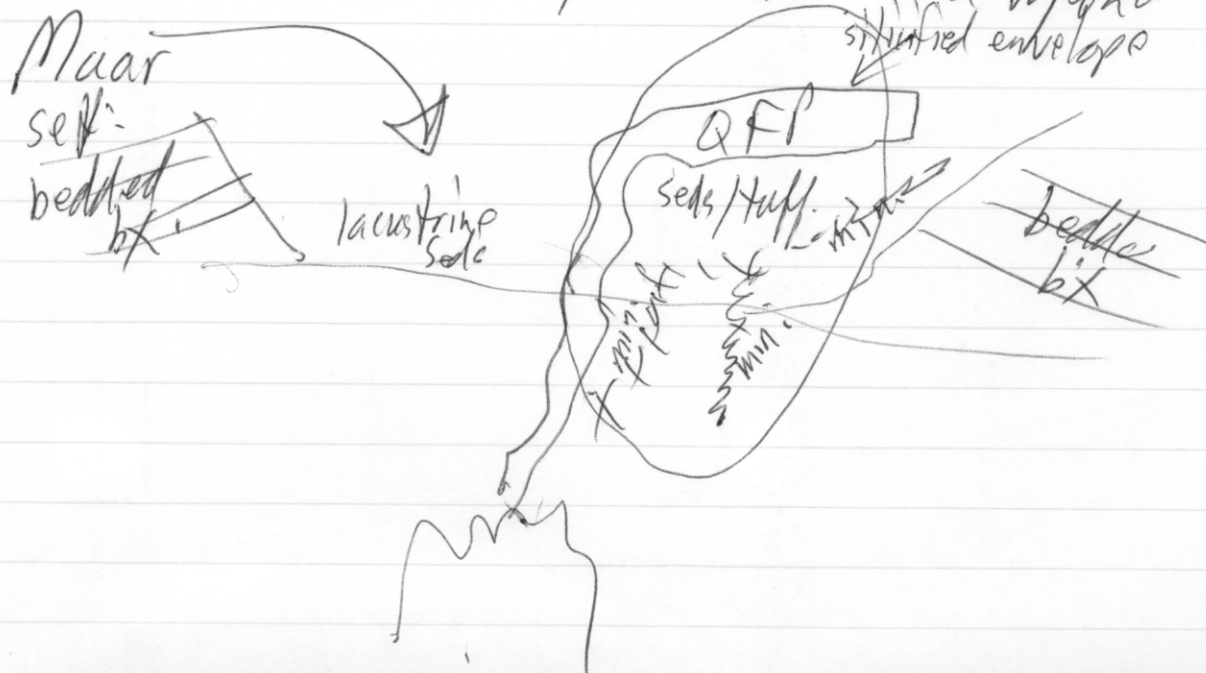 silicified envelope
Maar
bedded
bx
lacustrine
seds
QFP
seds/tuff
min.
min.
min.
bedded
bx